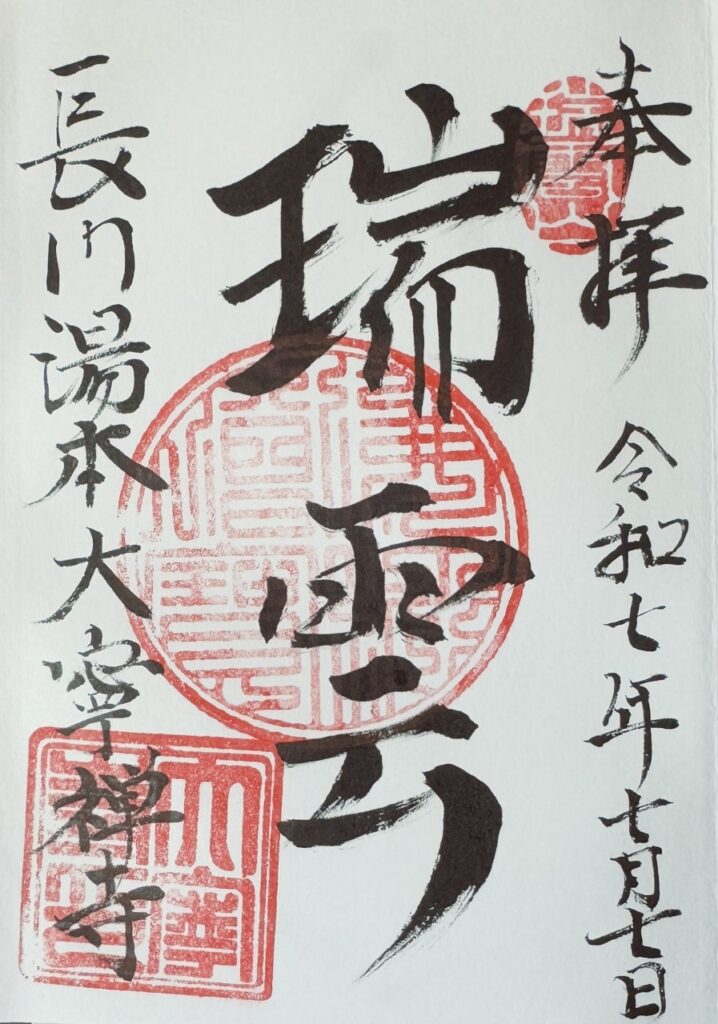 奉拝 令和七年七月七日
瑞雲山
瑞雲
長门湯本大寧禅寺